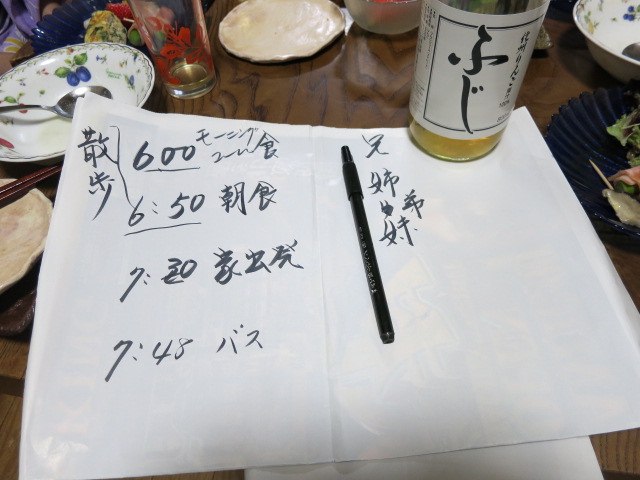 散歩
600 モーニング
コール 食
6:50 朝食
7:20 家出発
7:48 バス
兄
姉 弟
妹
ふじ